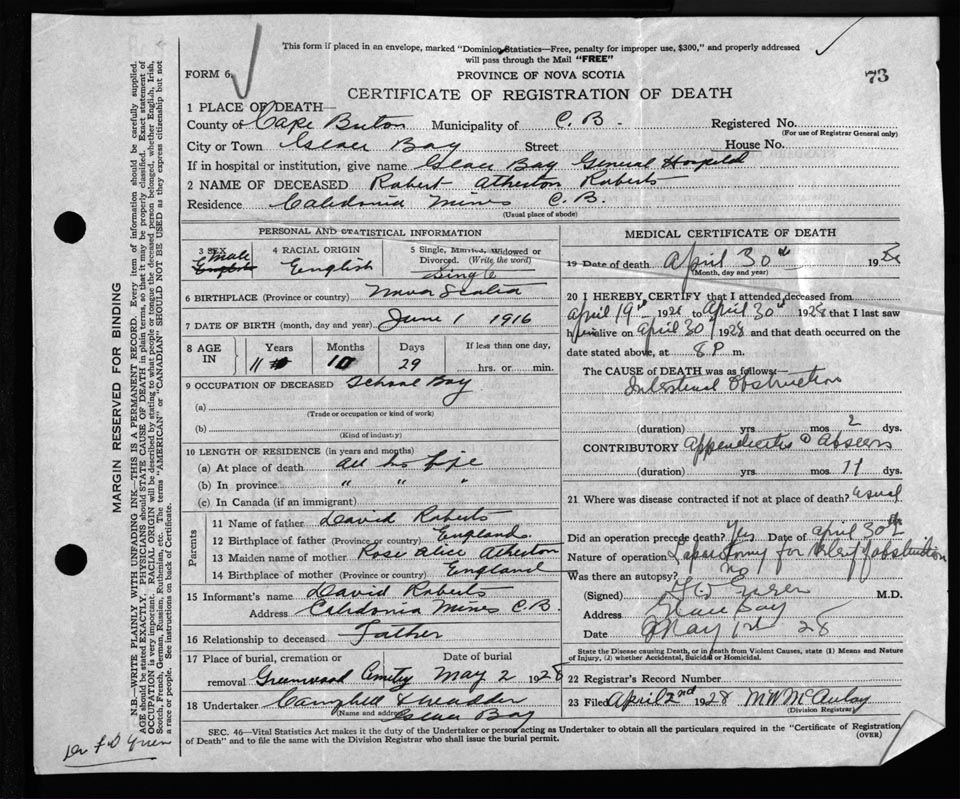 This form if placed in an envelope, marked "Dominion Statistics—Free, penalty for improper use, $300," and properly addressed
will pass through the Mail "FREE"
FORM 6
PROVINCE OF NOVA SCOTIA
73
CERTIFICATE OF REGISTRATION OF DEATH
1 PLACE OF DEATH—
County of Cape Breton Municipality of C. B. Registered No.
(For use of Registrar General only)
City or Town Glace Bay Street House No.
If in hospital or institution, give name Glace Bay General Hospital
2 NAME OF DECEASED Robert Atherton Roberts
Residence Caledonia Mines C.B.
(Usual place of abode)
PERSONAL AND STATISTICAL INFORMATION
3 SEX Male English
4 RACIAL ORIGIN English
5 Single, Married, Widowed or
Divorced. (Write the word)
Single
6 BIRTHPLACE (Province or country) Nova Scotia
7 DATE OF BIRTH (month, day and year) June 1 1916
8 AGE IN Years Months Days If less than one day,
11 10 29 hrs. or min.
9 OCCUPATION OF DECEASED School Boy
(a)
(Trade or occupation or kind of work)
(b)
(Kind of industry)
10 LENGTH OF RESIDENCE (in years and months)
(a) At place of death all his life
(b) In province " " "
(c) In Canada (if an immigrant)
Parents
11 Name of father David Roberts
12 Birthplace of father (Province or country) England
13 Maiden name of mother Rose Alice Atherton
14 Birthplace of mother (Province or country) England
15 Informant's name David Roberts
Address Caledonia Mines C.B.
16 Relationship to deceased Father
17 Place of burial, cremation or Date of burial
removal Greenwood Cemetry May 2 1928
18 Undertaker Campbell
(Name and address)
Glace Bay
MEDICAL CERTIFICATE OF DEATH
19 Date of death April 30th 1928
(Month, day and year)
20 I HEREBY CERTIFY that I attended deceased from
April 19th 1928 to April 30th 1928 that I last saw
him alive on April 30 1928 and that death occurred on the
date stated above, at 8 P. m.
The CAUSE of DEATH was as follows:—
Intestinal Obstruction
(duration) yrs. mos. 2 dys.
CONTRIBUTORY Appendicitis Abscess
(duration) yrs. mos. 11 dys.
21 Where was disease contracted if not at place of death? usual
Did an operation precede death? Yes Date of April 30th
Nature of operation for relief of obstruction
Was there an autopsy? no
(Signed) M.D.
Address Glace Bay
Date May 1st 28
State the Disease causing Death, or in death from Violent Causes, state (1) Means and Nature
of Injury, (2) whether Accidental, Suicidal or Homicidal.
22 Registrar's Record Number
23 Filed April 2nd 1928 M W McAulay
(Division Registrar)
SEC. 46—Vital Statistics Act makes it the duty of the Undertaker or person acting as Undertaker to obtain all the particulars required in the "Certificate of Registration
of Death" and to file the same with the Division Registrar who shall issue the burial permit.
(OVER)
MARGIN RESERVED FOR BINDING
N.B.—WRITE PLAINLY WITH UNFADING INK—THIS IS A PERMANENT RECORD. Every item of information should be carefully supplied.
AGE should be stated EXACTLY. PHYSICIANS should STATE CAUSE OF DEATH in plain terms, so that it may be properly classified. Exact statement of
OCCUPATION is very important. RACIAL ORIGIN will be described by stating to what people or tongue the deceased person belonged, whether English, Irish,
Scotch, French, German, Russian, Ruthenian, etc. The terms "AMERICAN" or "CANADIAN" SHOULD NOT BE USED as they express citizenship but not
a race or people. See instructions on back of Certificate.